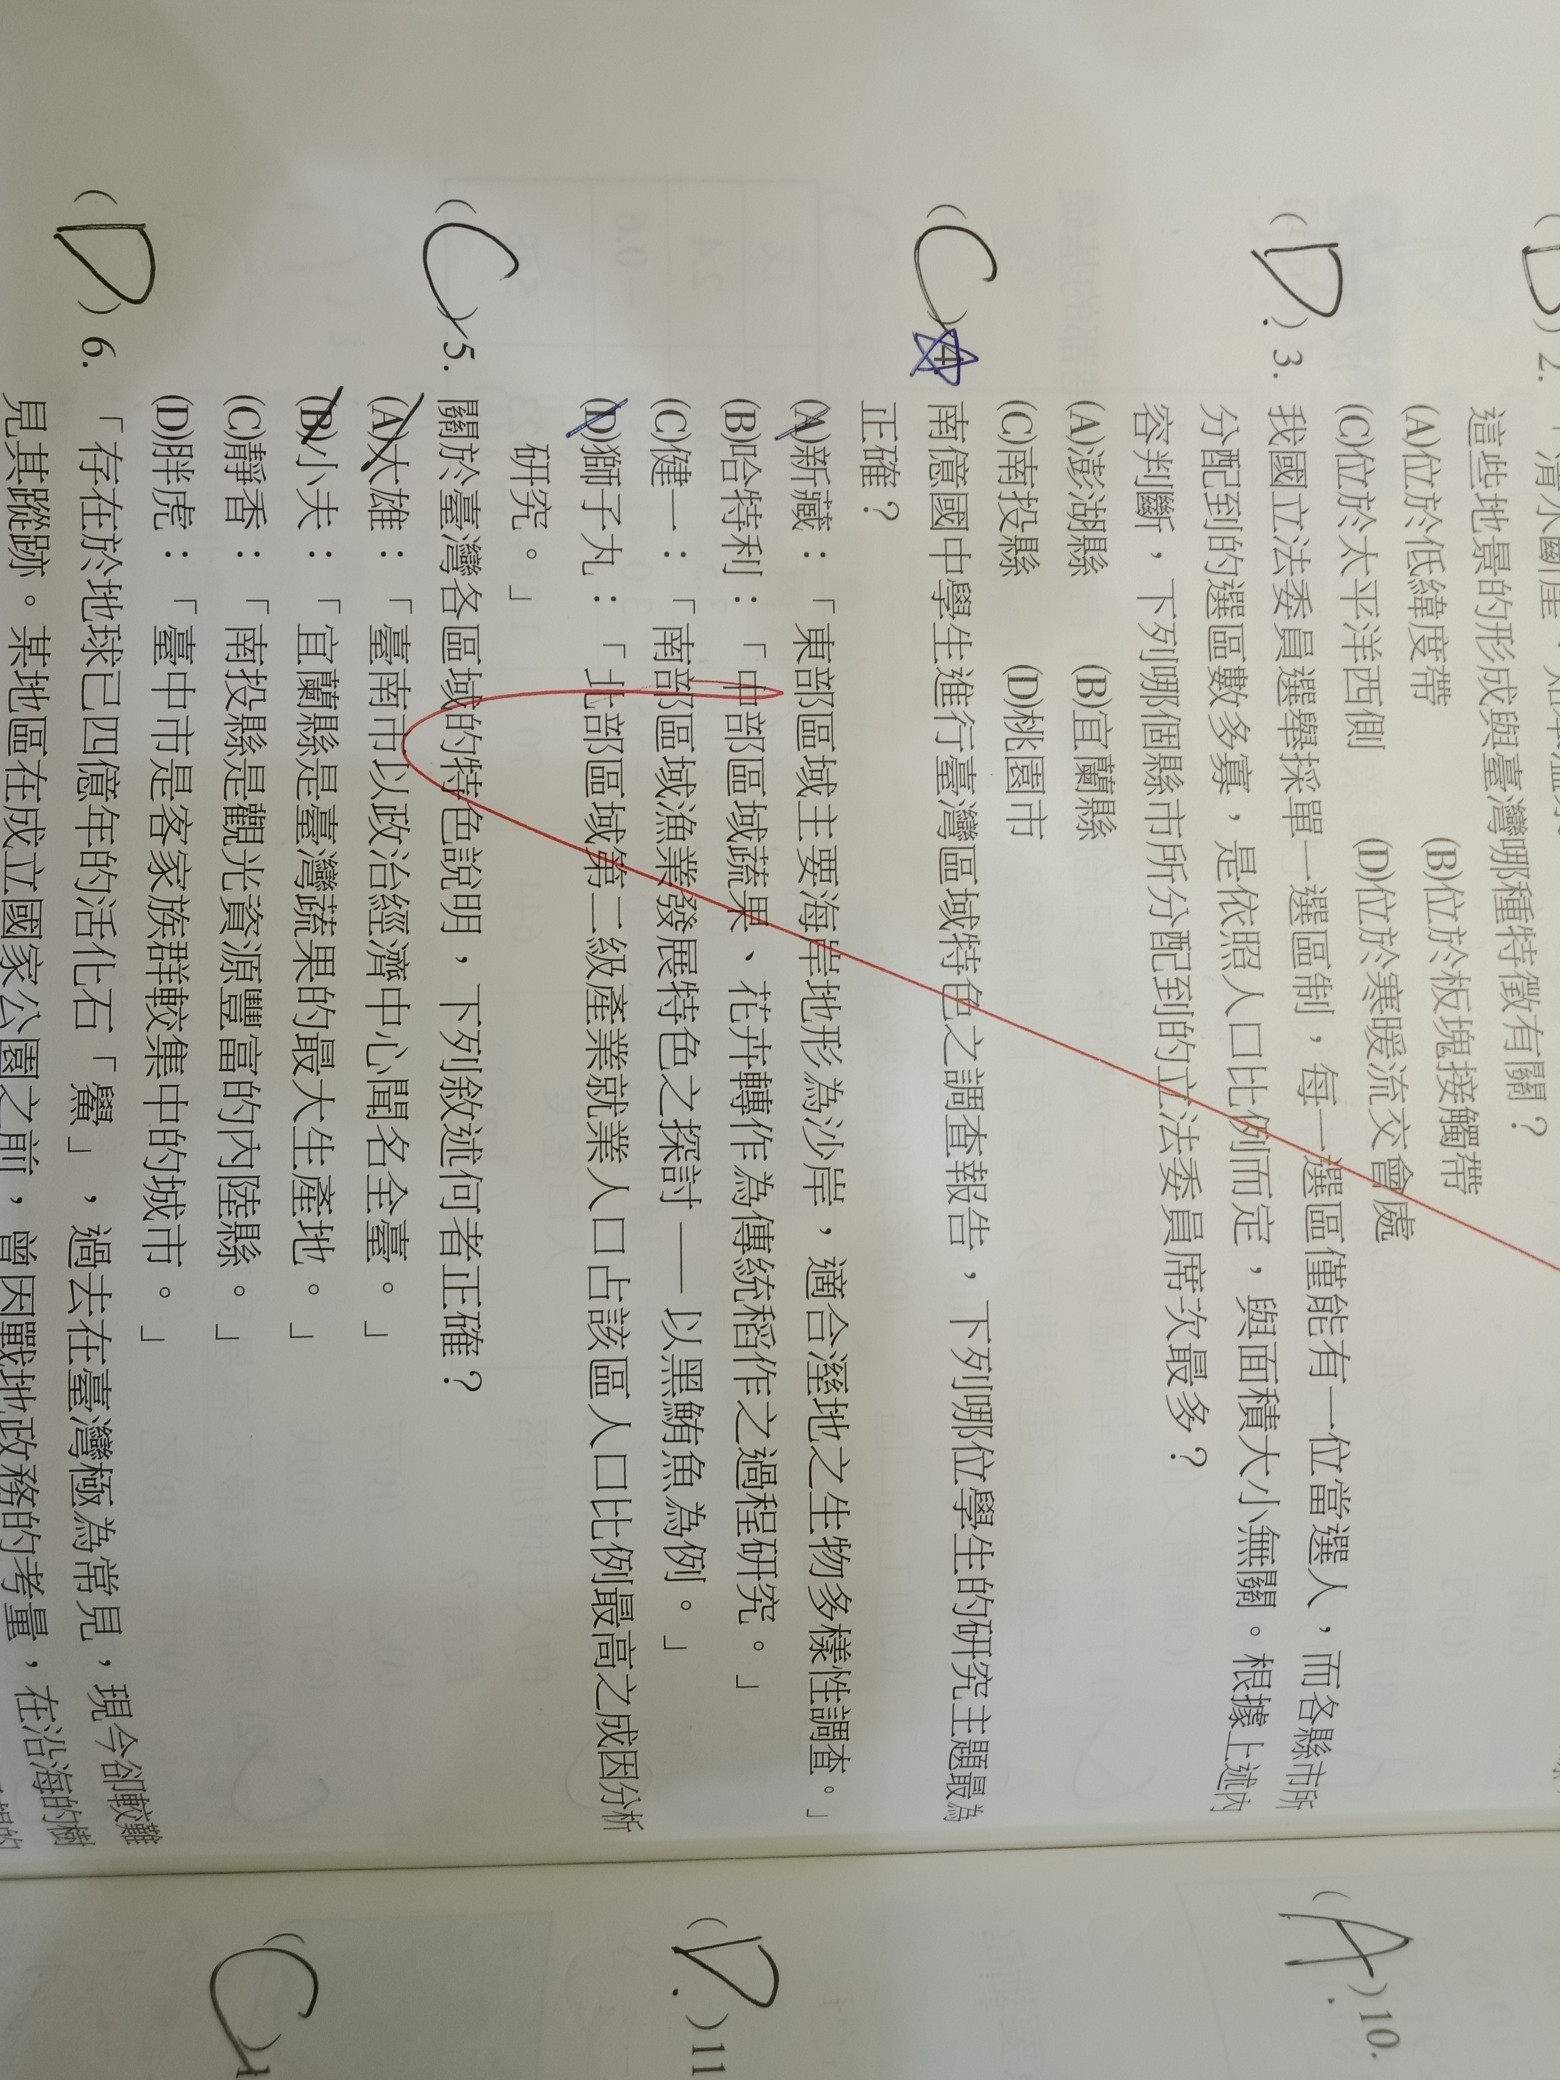 (D) 2. 「清水斷崖、
這些地景的形成與臺灣哪種特徵有關？
(A)位於低緯度帶 (B)位於板塊接觸帶
(C)位於太平洋西側 (D)位於寒暖流交會處
(D) 3. 我國立法委員選舉採單一選區制，每一選區僅能有一位當選人，而各縣市所
分配到的選區數多寡，是依照人口比例而定，與面積大小無關。根據上述內
容判斷，下列哪個縣市所分配到的立法委員席次最多？
(A)澎湖縣 (B)宜蘭縣
(C)南投縣 (D)桃園市
(C) 4. 南億國中學生進行臺灣區域特色之調查報告，下列哪位學生的研究主題最為
正確？
(A)新藏：「東部區域主要海岸地形為沙岸，適合溼地之生物多樣性調查。」
(B)哈特利：「中部區域蔬果、花卉轉作為傳統稻作之過程研究。」
(C)健一：「南部區域漁業發展特色之探討——以黑鮪魚為例。」
(D)獅子丸：「北部區域第二級產業就業人口占該區人口比例最高之成因分析
研究。」
(C) 5. 關於臺灣各區域的特色說明，下列敘述何者正確？
(A)大雄：「臺南市以政治經濟中心聞名全臺。」
(B)小夫：「宜蘭縣是臺灣蔬果的最大生產地。」
(C)靜香：「南投縣是觀光資源豐富的內陸縣。」
(D)胖虎：「臺中市是客家族群較集中的城市。」
(D) 6. 「存在於地球已四億年的活化石「鱟」，過去在臺灣極為常見，現今卻較難
見其蹤跡。某地區在成立國家公園之前，曾因戰地政務的考量，在沿海的樹
(A) 10.
(D) 11
(C) 1